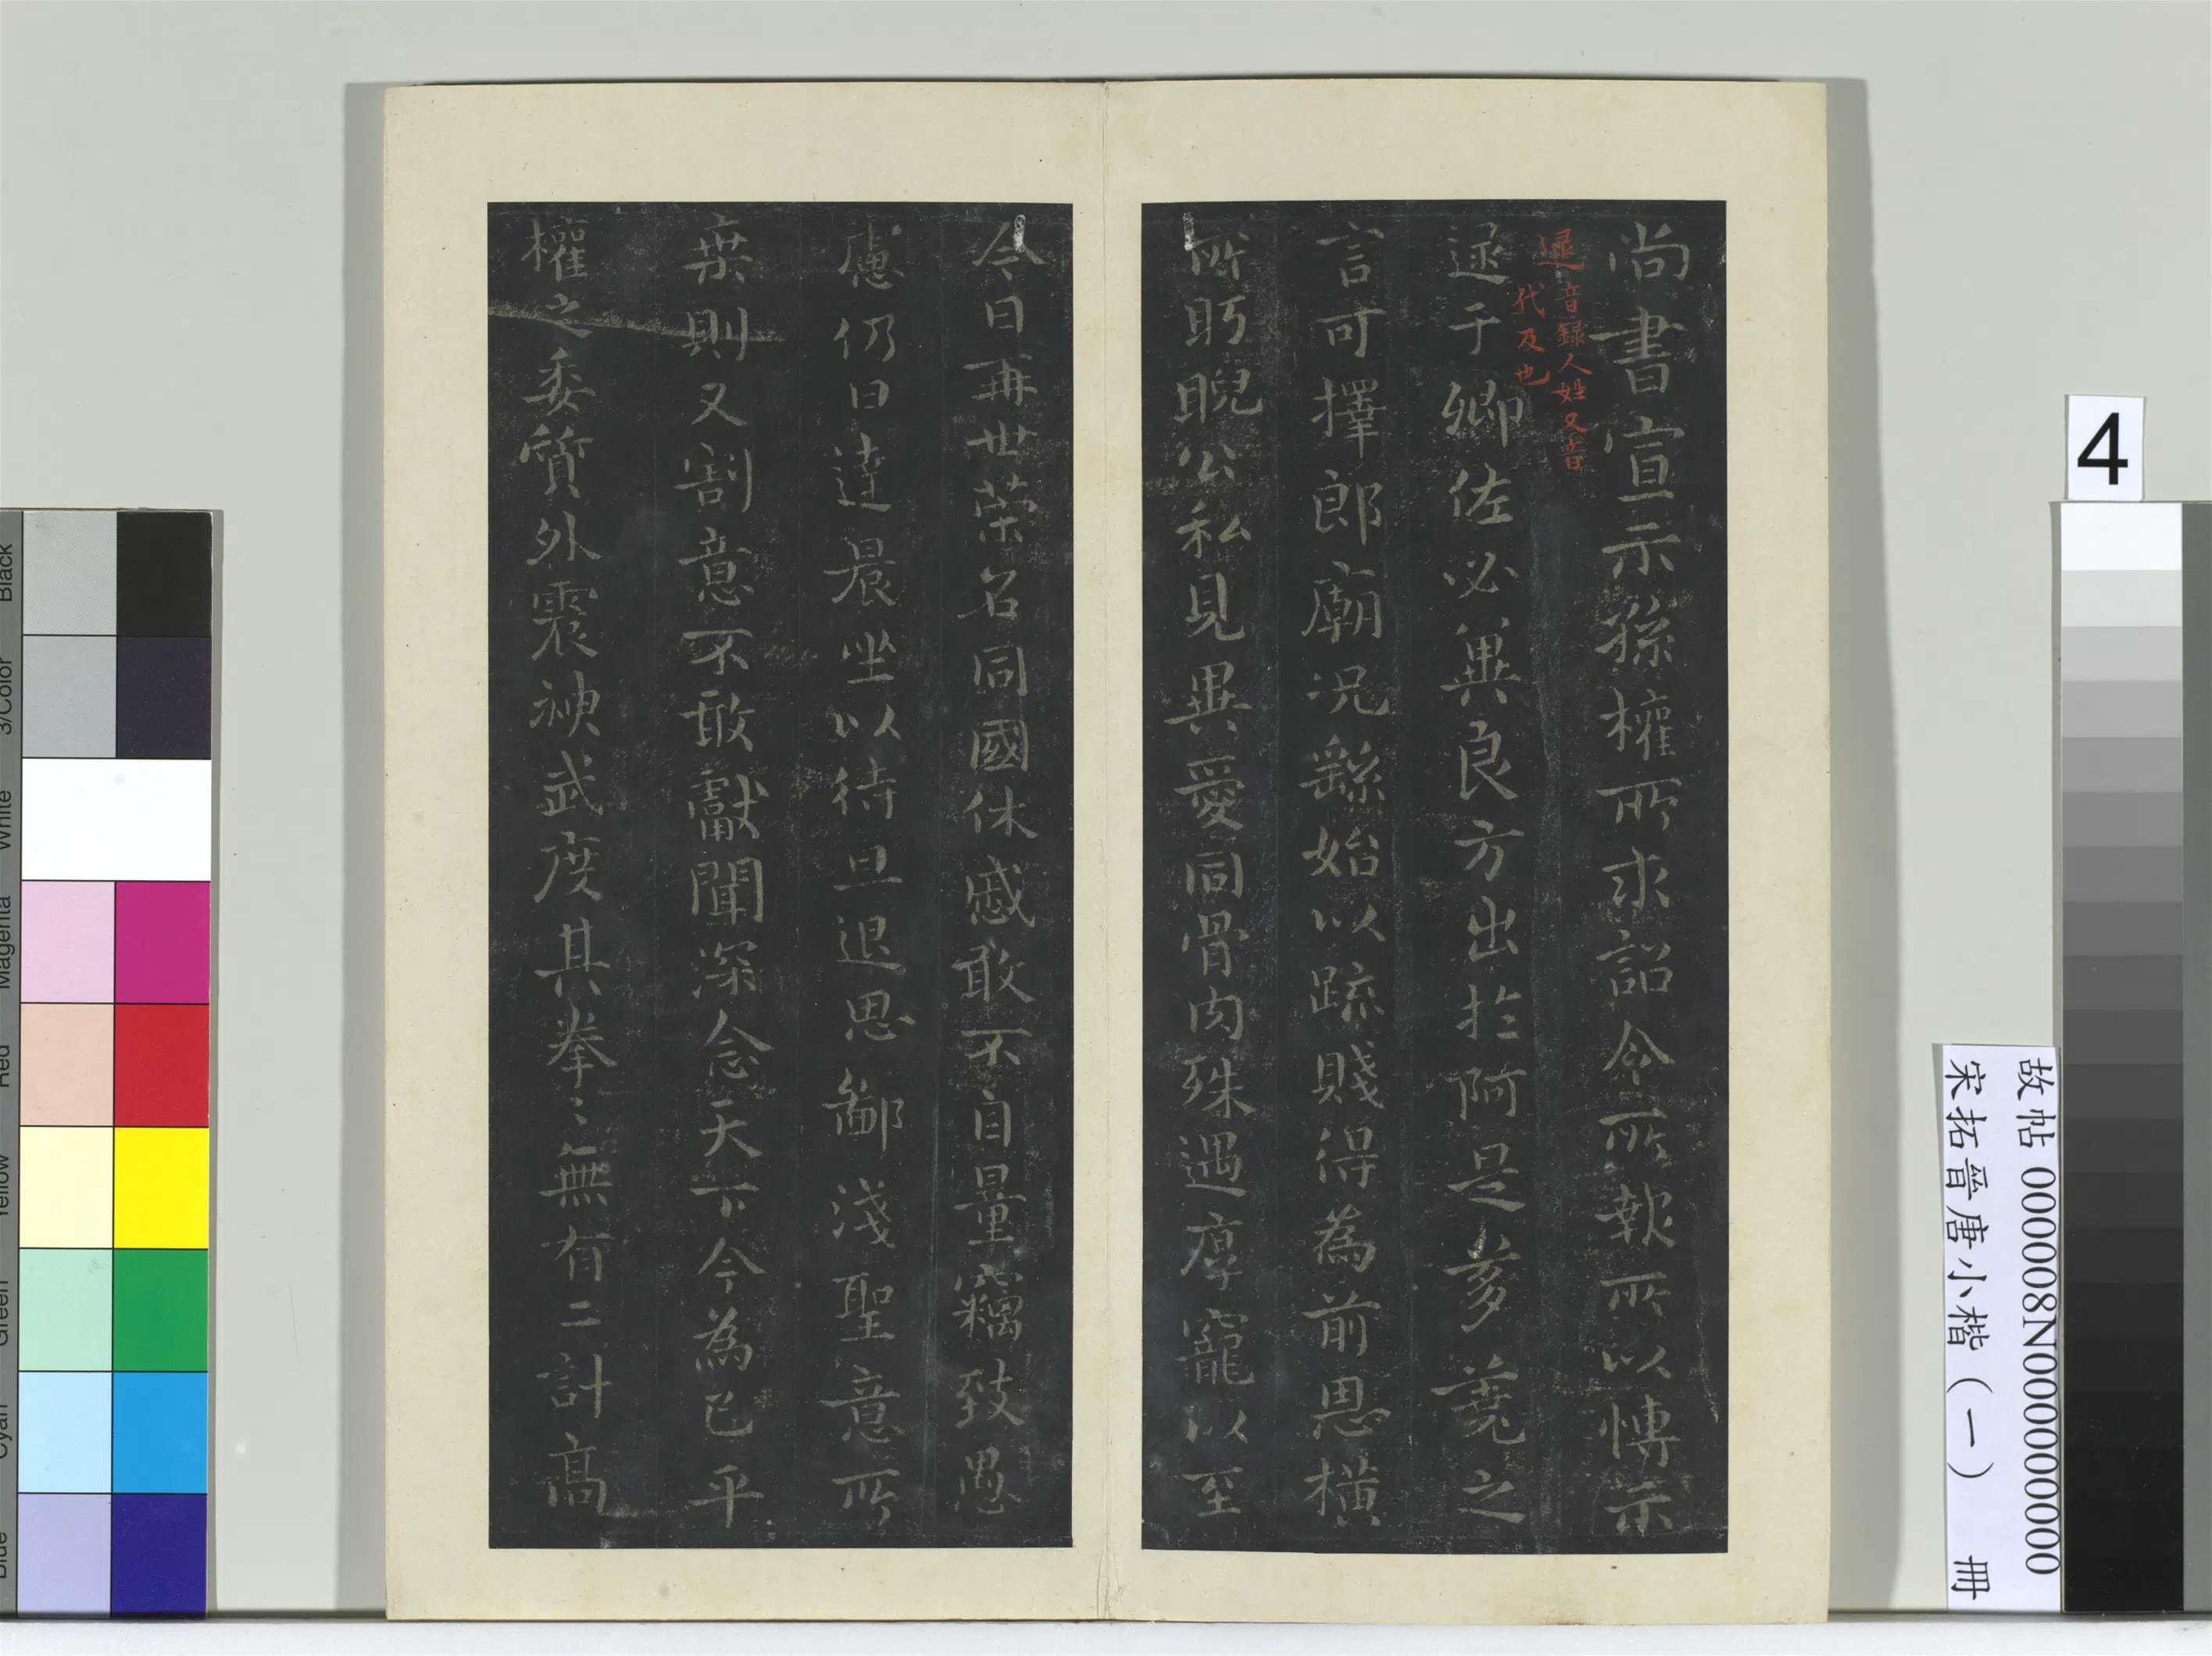 尚書宣示孫權所求詔令所報所以博示
逯于卿佐必異良方出於阿是芻蕘之
逯音録人姓又音
代及也
言可擇郎廟況繇始以疏賤得為前恩橫
所眄睨公私見異愛同骨肉殊遇厚寵以至
今日再世榮名同國休慼敢不自量竊致愚
慮仍日達晨坐以待旦退思鄙淺聖意所
棄則又割意不敢獻聞深念天下今為已平
權之委質外震神武度其拳〻無有二計高
4
故帖 000008N000000000
宋拓晉唐小楷（一） 冊
Black
3/Color
White
Magenta
Red
Yellow
Green
Cyan
Blue